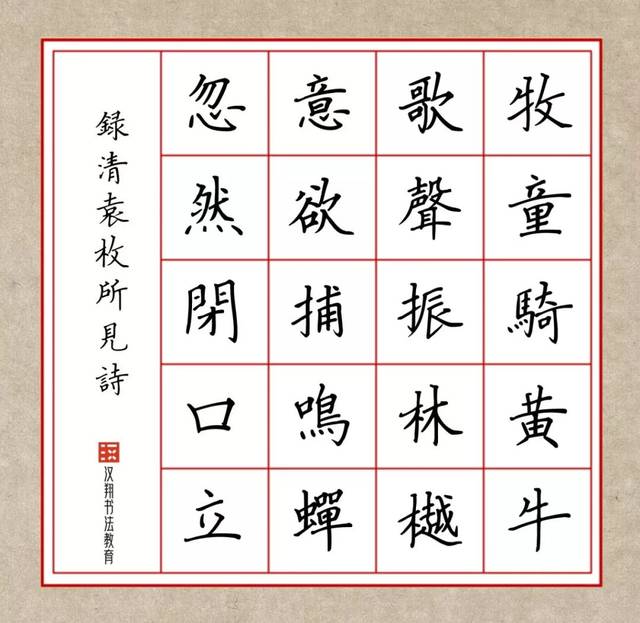 牧童騎黃牛
歌聲振林樾
意欲捕鳴蟬
忽然閉口立
録清袁枚所見詩
汉翔书法教育